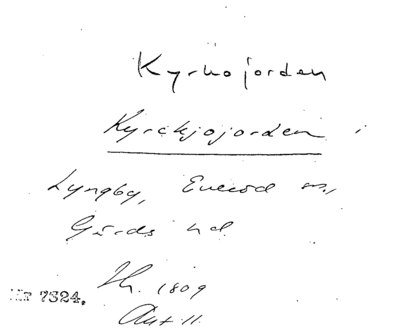 Kyrkojorden
Kyrckjojorden i
Lyngby, Everöd sn,
Gärds hd
1809
Nr 7324.
Akt 11.